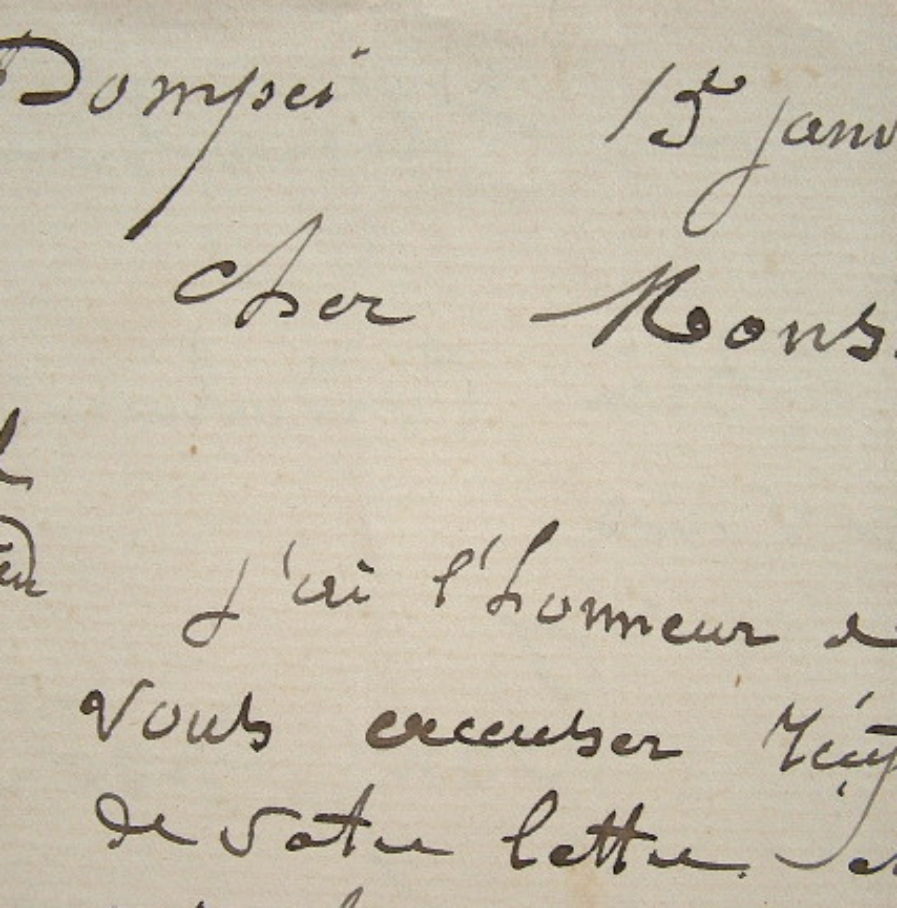 Pompei 15 janv
Cher Mons
j'ai l'honneur d
vous accuser réç
de votre lettre